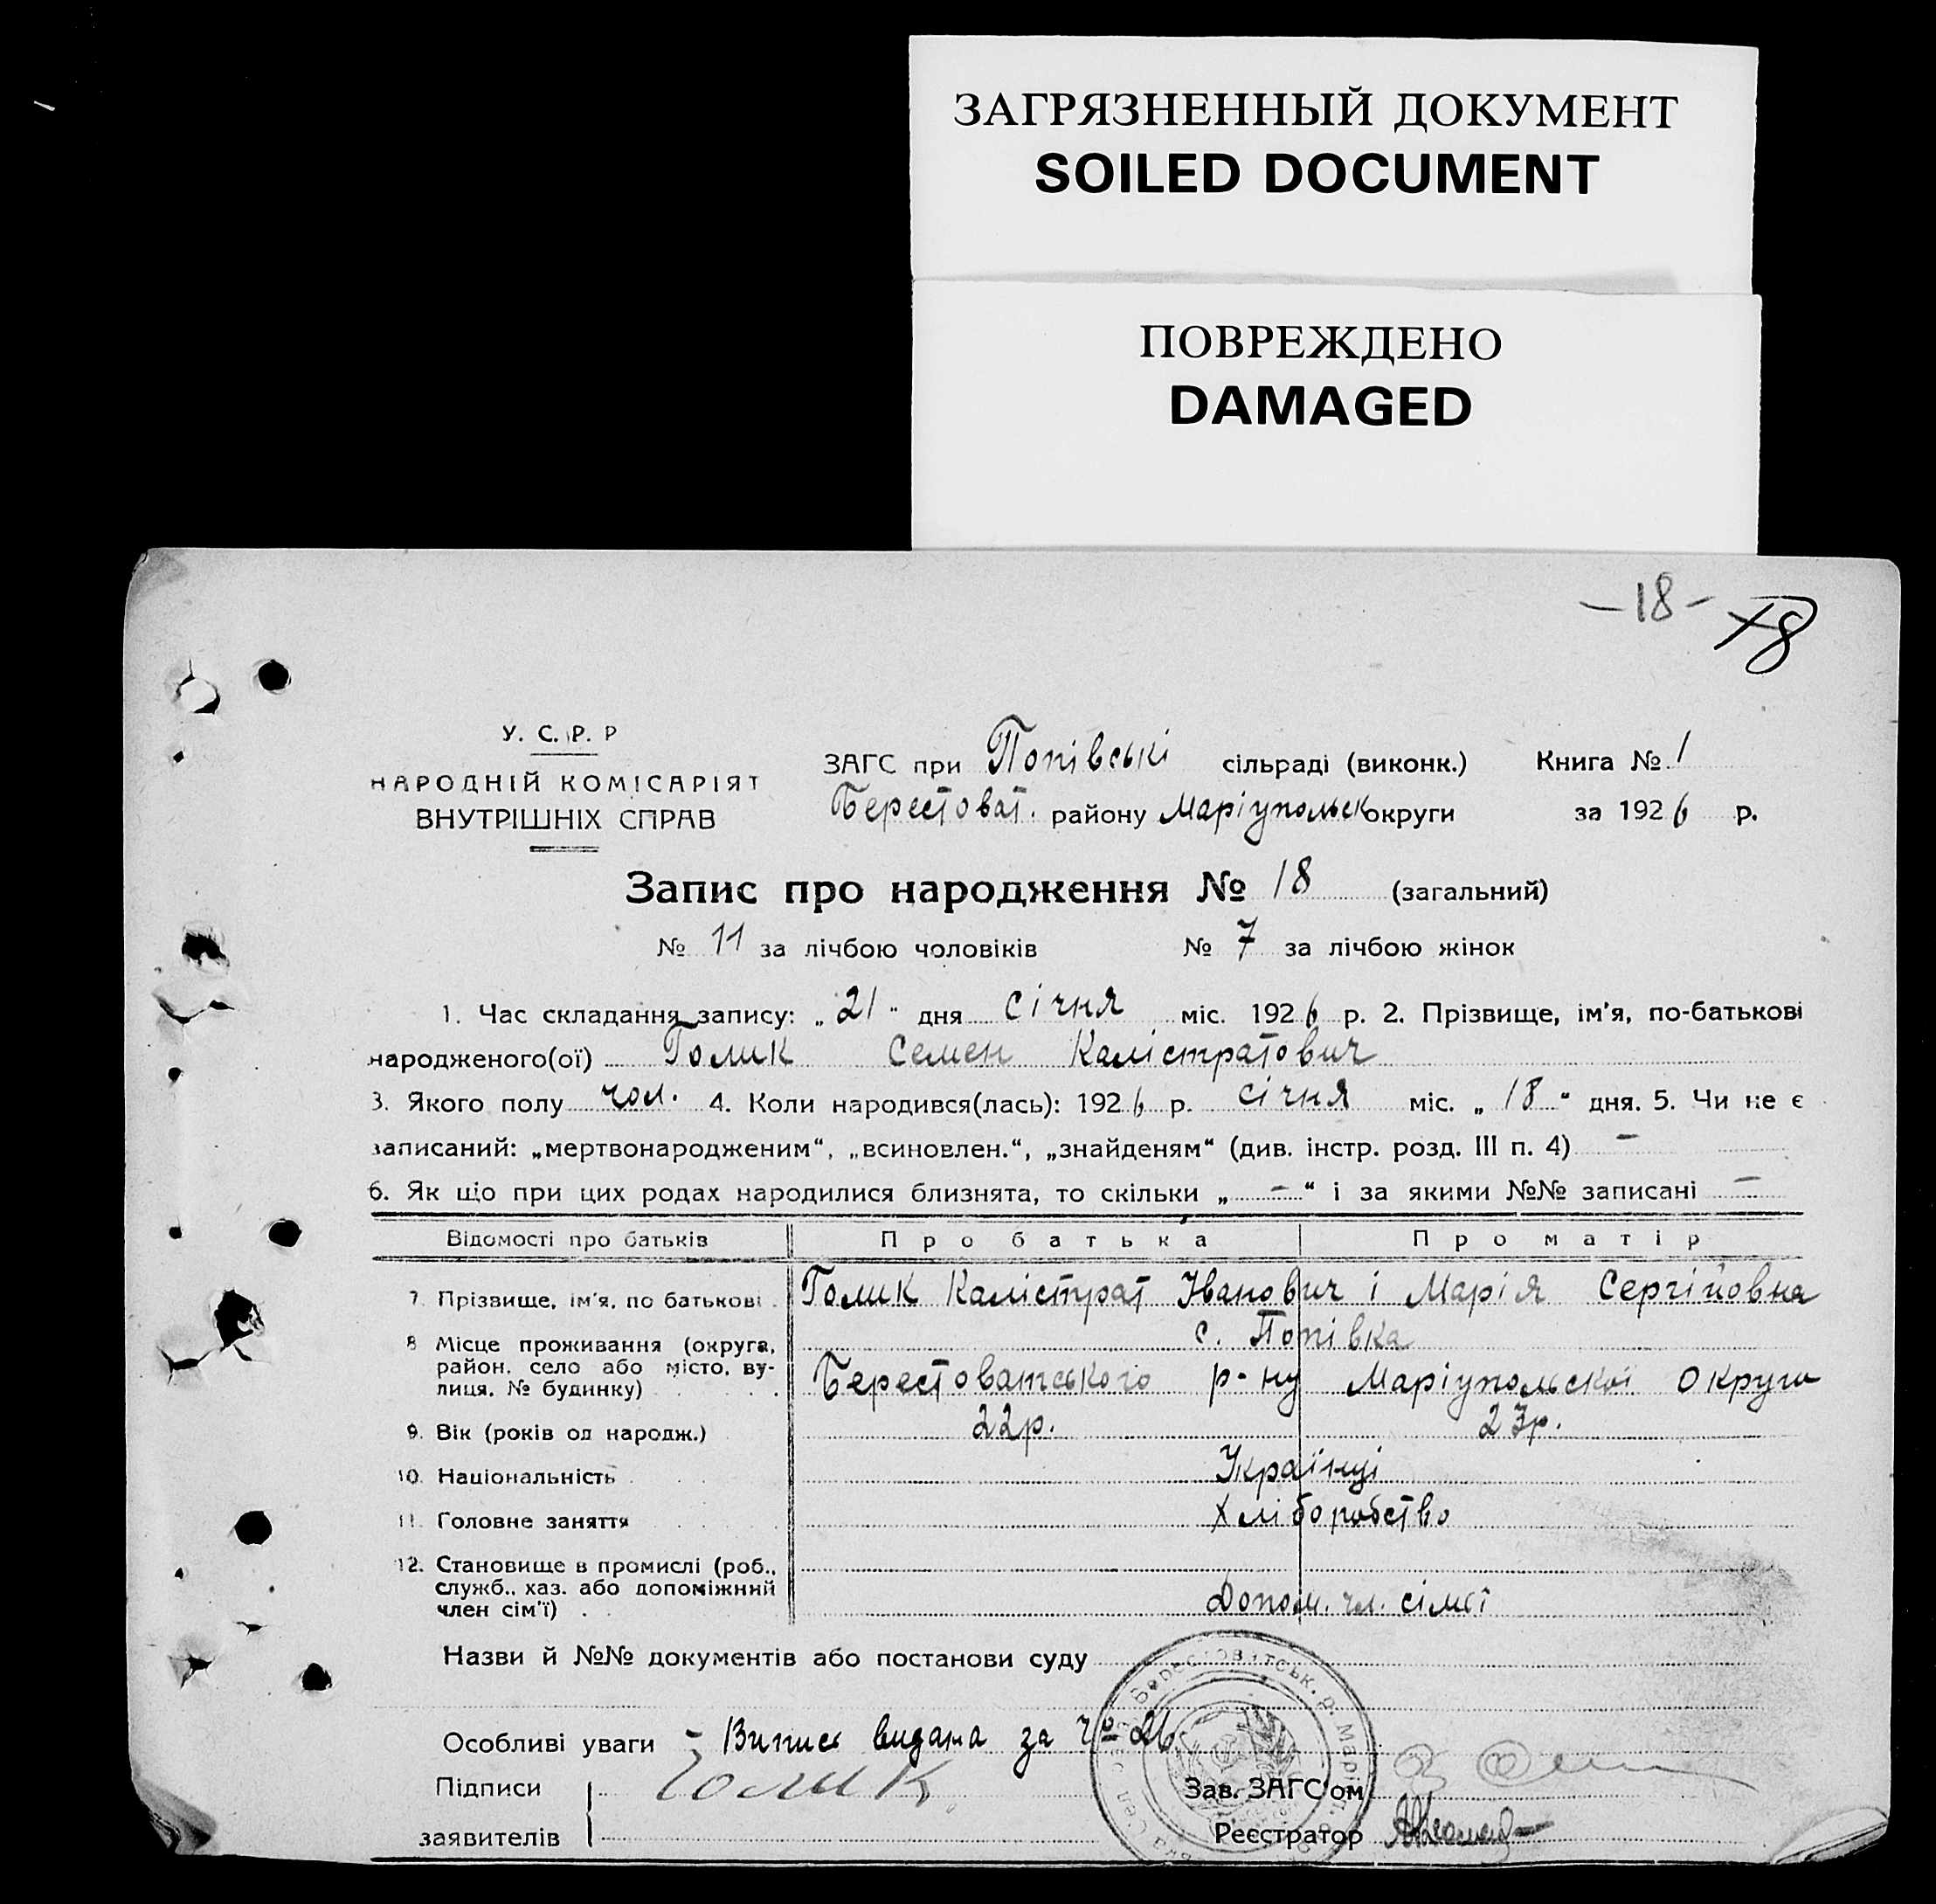 ЗАГРЯЗНЕННЫЙ ДОКУМЕНТ
SOILED DOCUMENT
ПОВРЕЖДЕНО
DAMAGED
-18- 18
У. С. Р. Р
НАРОДНІЙ КОМІСАРІЯТ
ВНУТРІШНІХ СПРАВ
ЗАГС при Попівські сільраді (виконк.) Книга № 1
Берестоват. району Маріупольск округи за 1926 р.
Запис про народження № 18 (загальний)
№ 11 за лічбою чоловіків № 7 за лічбою жінок
1. Час складання запису: „21" дня січня міс. 1926 р. 2. Прізвище, ім'я, по-батькові
народженого(ої) Голик Семен Калістратович
3. Якого полу чол. 4. Коли народився(лась): 1926 р. січня міс. „18" дня. 5. Чи не є
записаний: „мертвонародженим", „всиновлен.", „знайденям" (див. інстр. розд. III п. 4) –
6. Як що при цих родах народилися близнята, то скільки „–" і за якими №№ записані –
Відомості про батьків Про батька Про матір
7. Прізвище, ім'я, по батькові Голик Калістрат Іванович і Марія Сергійовна
8 Місце проживання (округа, район, село або місто, ву-
лиця, № будинку) с. Попівка
Берестоватського р-ну Маріупольскої Округи
9. Вік (років од народж.) 22р. 23р.
10. Національність Українці
11. Головне заняття Хліборобство
12. Становище в промислі (роб.,
служб., хаз. або допоміжний
член сім'ї) Допом. чл. сімєї
Назви й №№ документів або постанови суду
Особливі уваги – Випис видана за
Підписи Голик Зав. ЗАГС'ом
заявителів Реєстратор